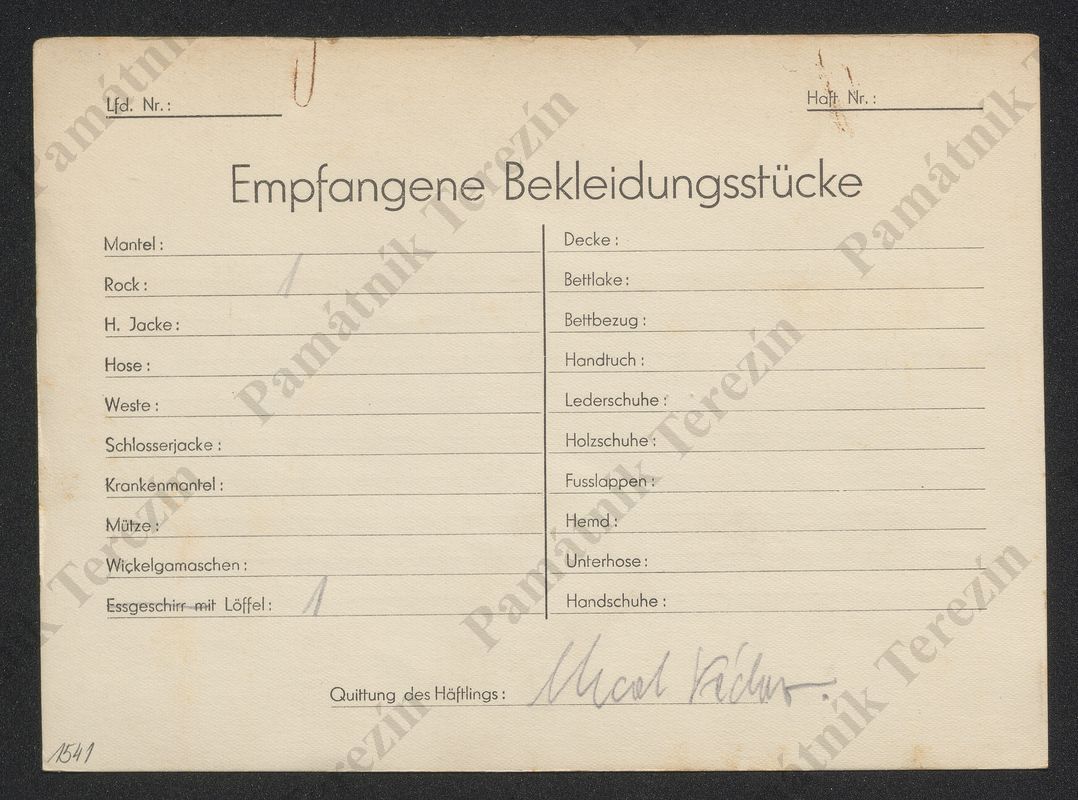 Lfd. Nr.:
Haft Nr.:
Empfangene Bekleidungsstücke
Mantel:
Rock: 1
H. Jacke:
Hose:
Weste:
Schlosserjacke:
Krankenmantel:
Mütze:
Wickelgamaschen:
Essgeschirr mit Löffel: 1
Decke:
Bettlake:
Bettbezug:
Handtuch:
Lederschuhe:
Holzschuhe:
Fusslappen:
Hemd:
Unterhose:
Handschuhe:
Quittung des Häftlings:
1541
Památník Terezín